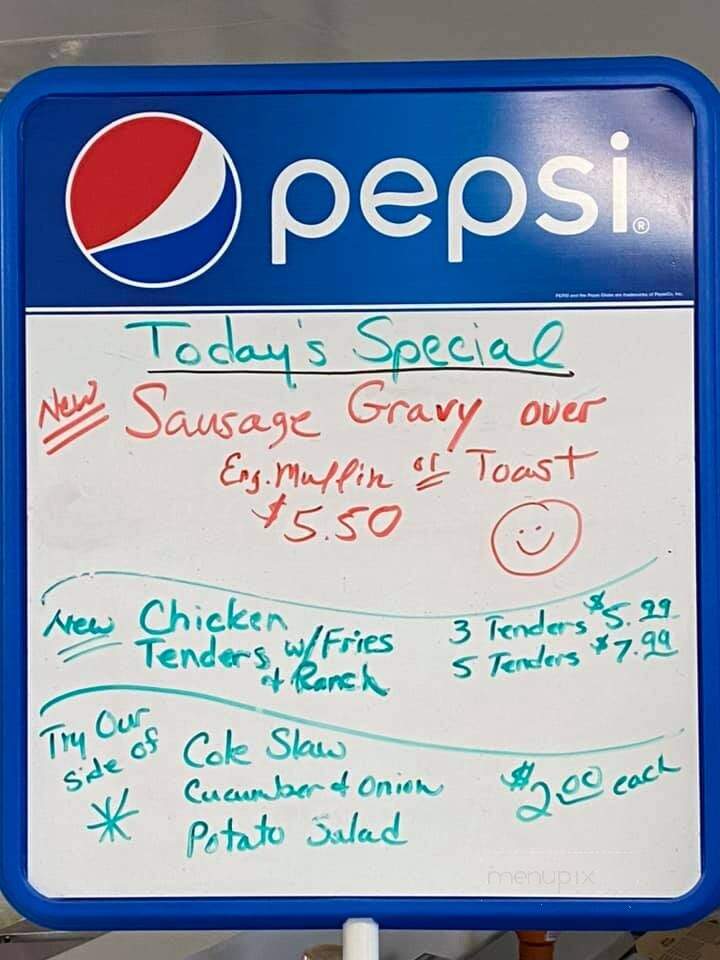 pepsi®
Today's Special
New Sausage Gravy over
Eng. Muffin or Toast
$5.50
New Chicken
Tenders w/Fries
+ Ranch
3 Tenders $5.99
5 Tenders $7.99
Try Our
side of
Cole Slaw
Cucumber & Onion
Potato Salad
$2.00 each
menupix